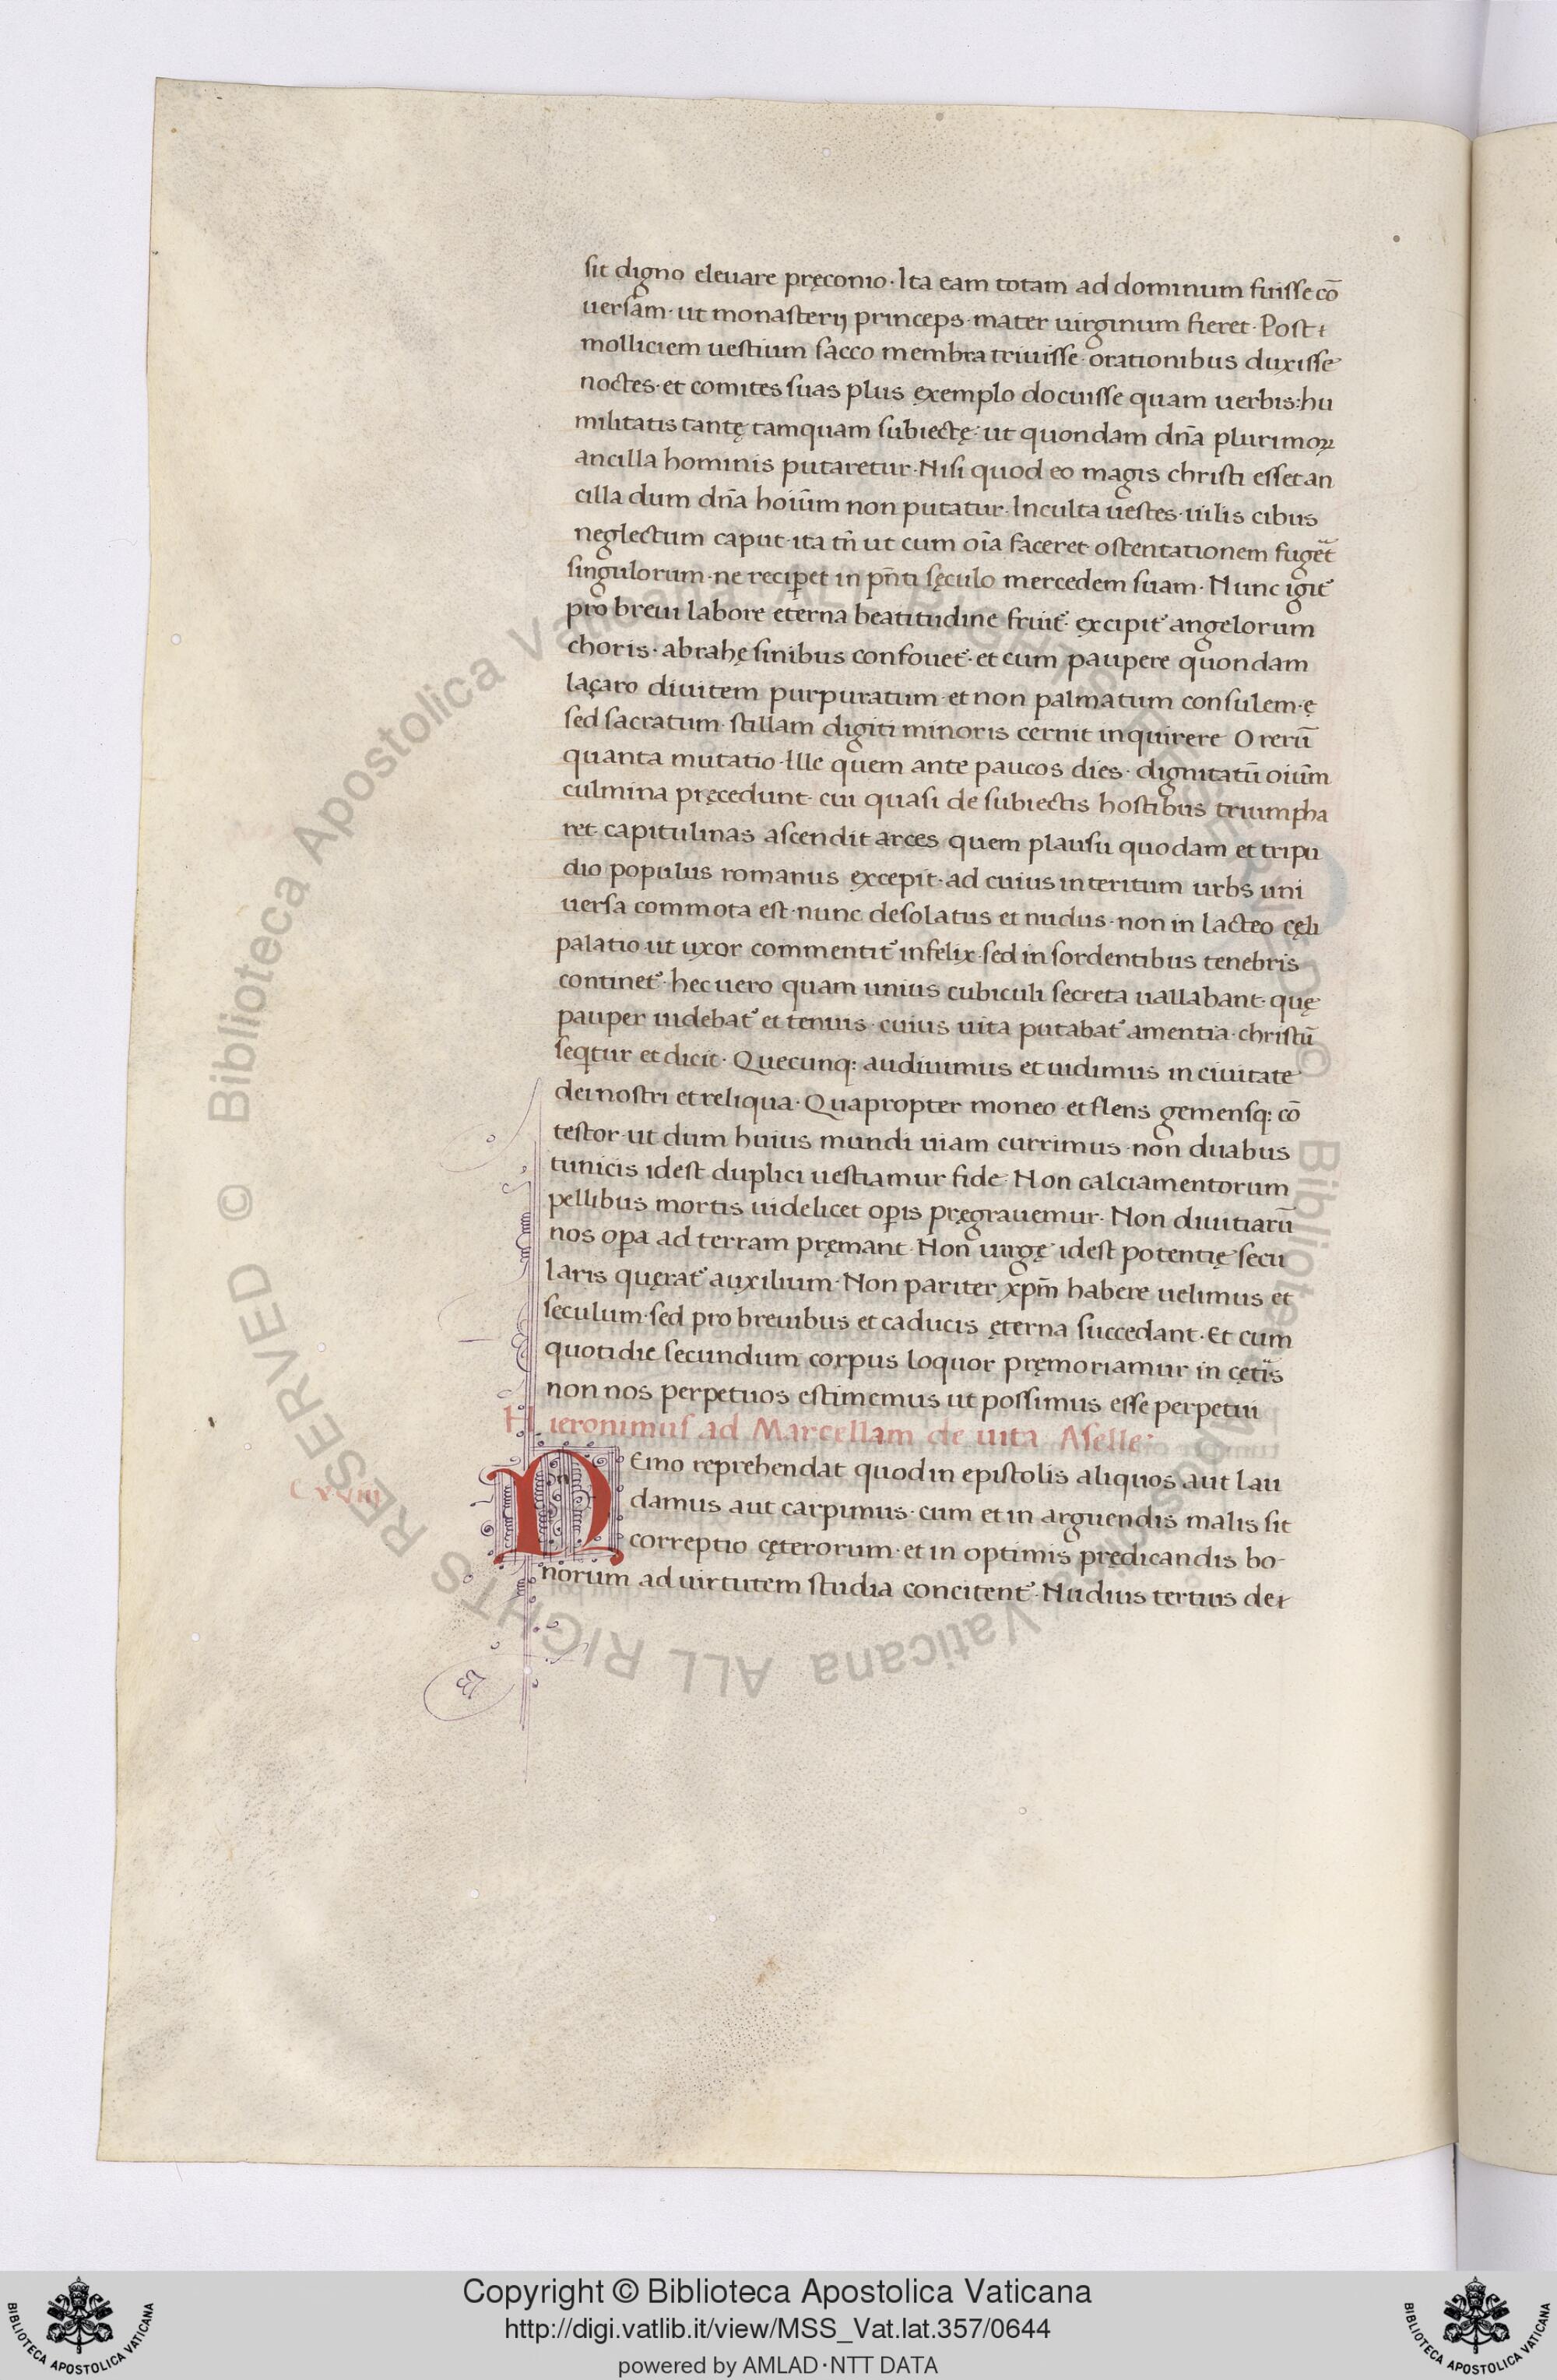 sit digno eleuare pręconio · Ita eam totam ad dominum fuisse cō
uersam · ut monasterij princeps · mater uirginum fieret · Post
molliciem uestium sacco membra triuisse · orationibus duxisse
noctes · et comites suas plus exemplo docuisse quam uerbis : hu
militatis tantę tamquam subiectę · ut quondam dn̄a plurimoꝝ
ancilla hominis putaretur · Nisi quod eo magis christi esset an
cilla dum dn̄a hoiūm non putatur · Inculta uestes · uilis cibus
neglectum caput · ita tn̄ ut cum oīa faceret ostentationem fugēt
singulorum · ne reciꝑet in pn̄ti sęculo mercedem suam · Nunc igit᷑
pro breui labore eterna beatitudine fruit᷑ · excipit᷑ angelorum
choris · abrahę sinibus confouet᷑ · et cum paupere quondam
laçaro diuitem purpuratum · et non palmatum consulem · ę
sed sacratum · stillam digiti minoris cernit inquirere O rerū
quanta mutatio · Ille quem ante paucos dies · dignitatū oiūm
culmina pręcedunt · cui quasi de subiectis hostibus triumpha
ret · capitulinas ascendit arces quem plausu quodam et tripu
dio populus romanus excepit · ad cuius interitum urbs uni
uersa commota est · nunc desolatus et nudus · non in lacteo cęli
palatio ut uxor commentit᷑ infelix · sed in sordentibus tenebris
continet᷑ · hec uero quam unius cubiculi secreta uallabant · quę
pauper uidebat᷑ et tenuis · cuius uita putabat᷑ amentia · christū
seqtur et dicit · Quecunq: audiuimus et uidimus in ciuitate
dei nostri et reliqua · Quapropter moneo et flens gemensq: cō
testor · ut dum huius mundi uiam currimus · non duabus
tunicis idest duplici uestiamur fide · Non calciamentorum
pellibus mortis uidelicet oꝑis pręgrauemur · Non diuitiarū
nos oꝑa ad terram pręmant · Non uirgę idest potentię secu
laris quęrat᷑ auxilium · Non pariter xpm̄ habere uelimus et
seculum · sed pro breuibus et caducis ęterna succedant · Et cum
quotidie secundum corpus loquor pręmoriamur in cętīs
non nos perpetuos estimemus ut possimus esse perpetui
Hieronimus ad Marcellam de uita Aselle ·
NEmo reprehendat quod in epistolis aliquos aut lau
damus aut carpimus · cum et in arguendis malis sit
correptio cęterorum · et in optimis prędicandis bo
norum ad uirtutem studia concitent᷑ · Nudius tertius de
© Biblioteca Apostolica Vaticana ALL RIGHTS RESERVED
Copyright © Biblioteca Apostolica Vaticana
http://digi.vatlib.it/view/MSS_Vat.lat.357/0644
powered by AMLAD · NTT DATA
BIBLIOTECA APOSTOLICA VATICANA
BIBLIOTECA APOSTOLICA VATICANA